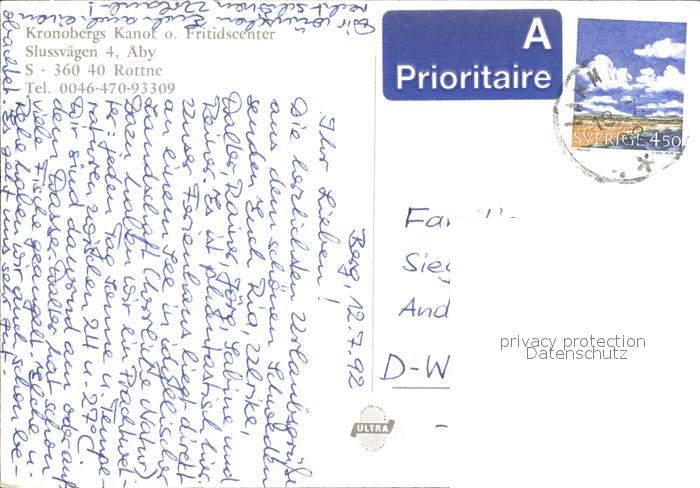 Kronobergs Kanot o. Fritidscenter
Slussvägen 4, Åby
S - 360 40 Rottne
Tel. 0046-470-93309
A
Prioritaire
SVERIGE 450
Berg, 12.7.92
Ihr Lieben!
Die herzlichsten Urlaubsgrüße
aus dem schönen Schweden
senden Euch Ria, Ulrike,
Walter, Rainer, Jörg, Sabine und
Rainer. Es ist phantastisch hier.
Unser Ferienhaus liegt direkt
an einem See in idyllischer
Landschaft (herrliche Natur).
Dazu haben wir ein Prachtwet-
ter: jeden Tag Sonne u. Tempe-
raturen zwischen 24 u. 27°C.
Wir sind dauernd am oder auf
dem Wasser. Walter hat schon
viele Fische geangelt. Elche u.
Rehe haben wir auch schon beo-
bachtet. Es geht uns sehr gut.
Wir wünschen Euch auch einen
recht schönen Urlaub!
Fa
Sieg
And
D-W
ULTRA
privacy protection
Datenschutz